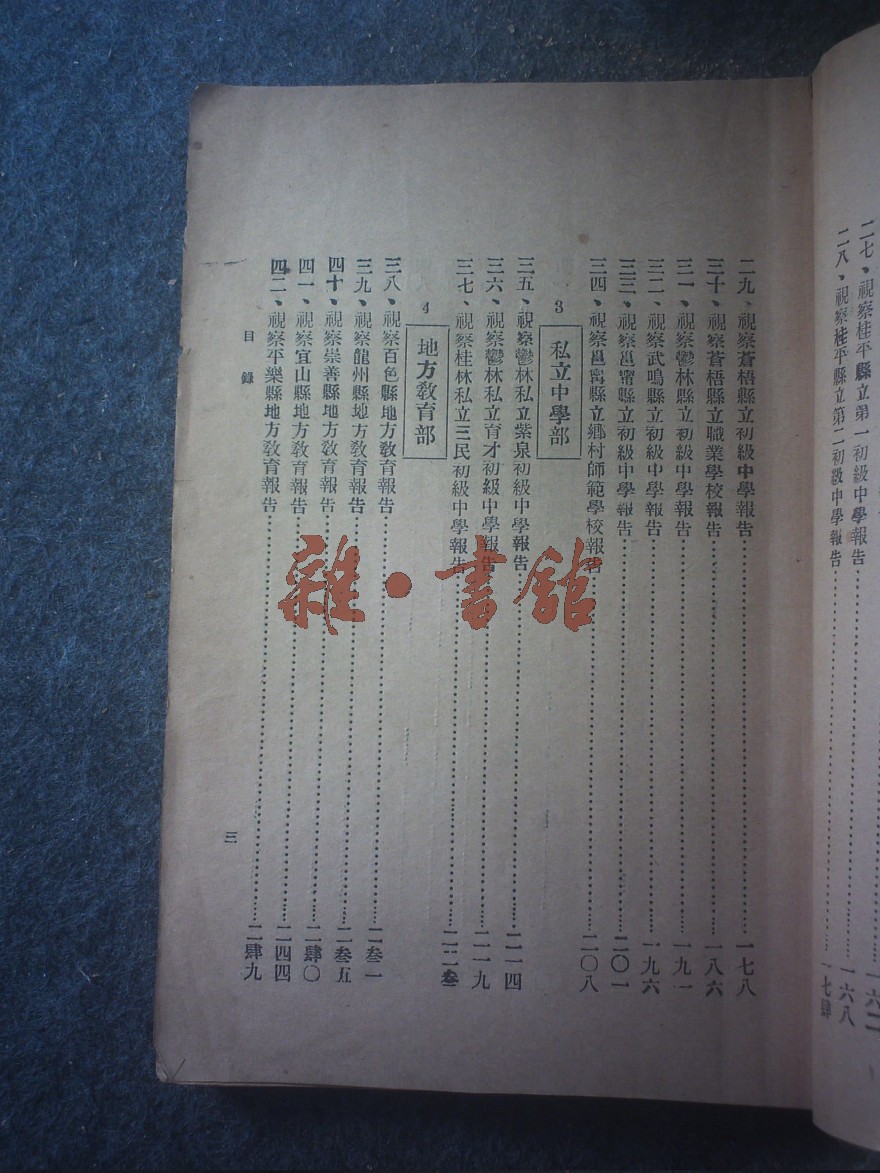 二七、視察桂平縣立第一初級中學報告……一六二
二八、視察桂平縣立第二初級中學報告……一六八
一七肆
二九、視察蒼梧縣立初級中學報告……一七八
三十、視察蒼梧縣立職業學校報告……一八六
三一、視察鬱林縣立初級中學報告……一九一
三二、視察武鳴縣立初級中學報告……一九六
三三、視察邕甯縣立初級中學報告……二〇一
三四、視察邕甯縣立鄉村師範學校報告……二〇八
3 私立中學部
三五、視察鬱林私立紫泉初級中學報告……二一四
三六、視察鬱林私立育才初級中學報告……二一九
三七、視察桂林私立三民初級中學報告……二二叁
4 地方教育部
三八、視察百色縣地方教育報告……二叁一
三九、視察龍州縣地方教育報告……二叁五
四十、視察崇善縣地方教育報告……二肆〇
四一、視察宜山縣地方教育報告……二四四
四二、視察平樂縣地方教育報告……二肆九
目錄
三
雜·書館